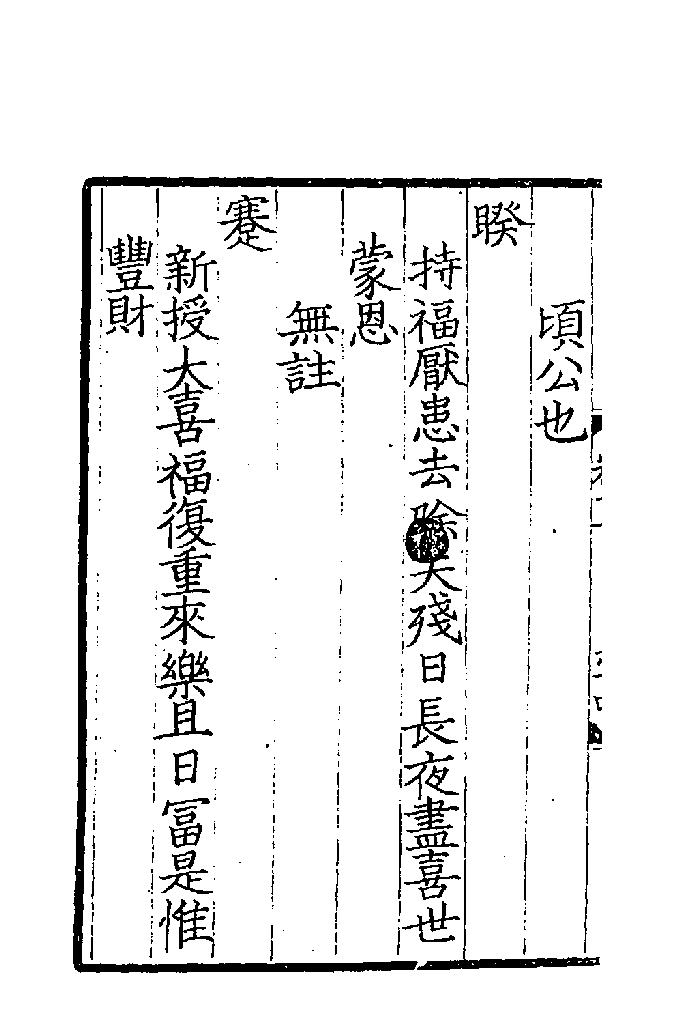 頃公也
睽
持福厭患去除大殘日長夜盡喜世
蒙恩
無註
蹇
新授大喜福復重來樂且日冨是惟
豐財